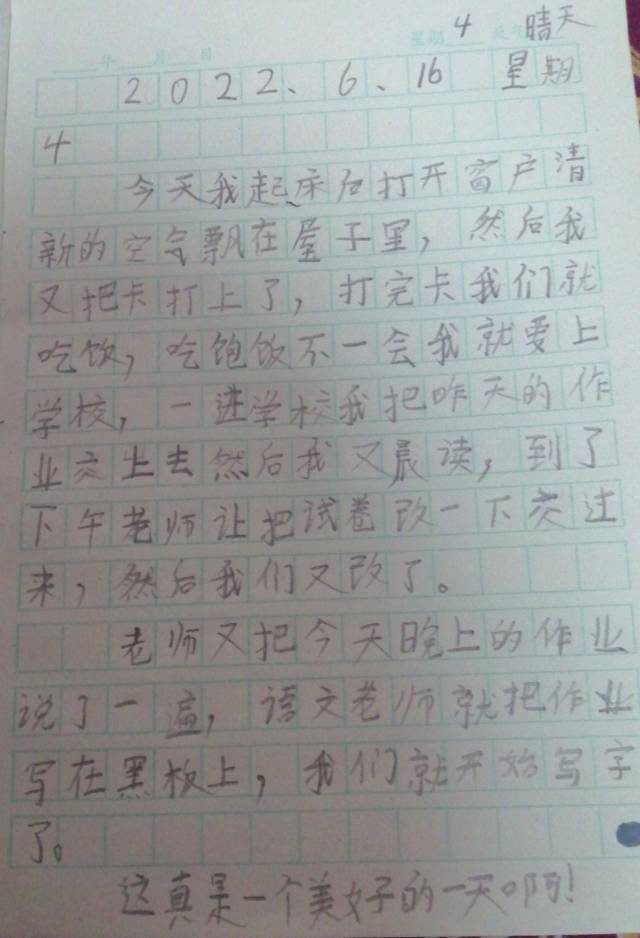 星期 4 天气 晴天
年 月 日
2022、6、16 星期
4
今天我起床后打开窗户清
新的空气飘在屋子里，然后我
又把卡打上了，打完卡我们就
吃饭，吃饱饭不一会我就要上
学校，一进学校我把昨天的作
业交上去然后我又晨读，到了
下午老师让把试卷改一下交过
来，然后我们又改了。
老师又把今天晚上的作业
说了一遍，语文老师就把作业
写在黑板上，我们就开始写字
了。
这真是一个美好的一天啊！